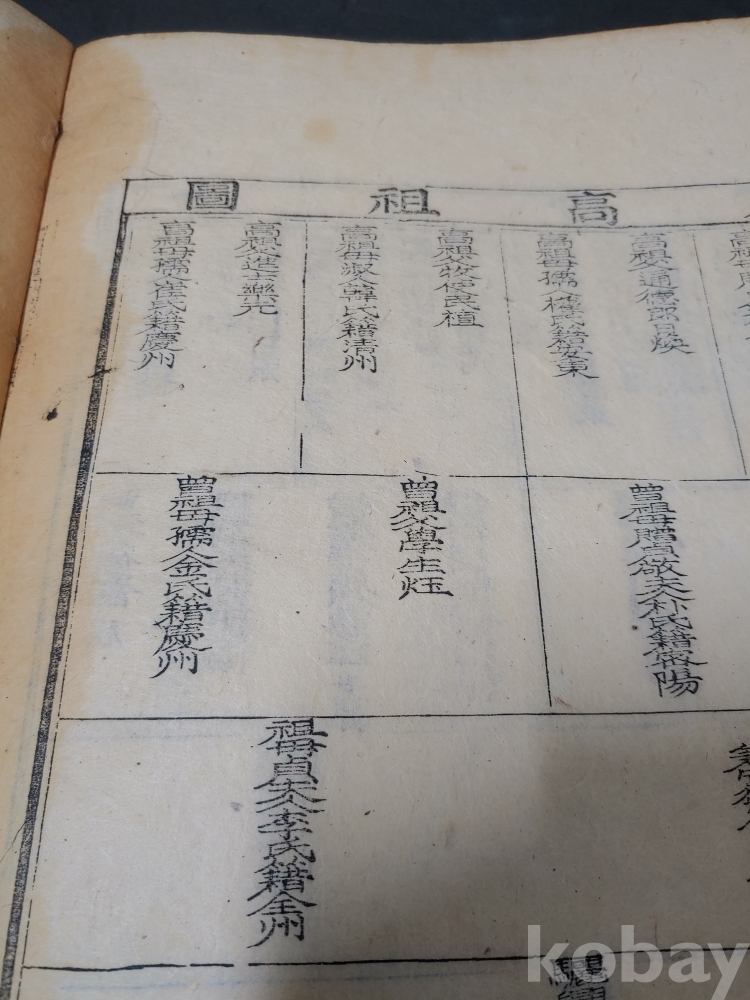 高祖圖
高祖父通德郎
高祖母孺人權氏籍安東
高祖父牧使民植
高祖母淑人韓氏籍清州
高祖父進士樂元
高祖母孺人崔氏籍慶州
曾祖母贈貞敬夫人朴氏籍密陽
曾祖父學生炷
曾祖母孺人金氏籍慶州
祖母貞夫人李氏籍全州
kobay